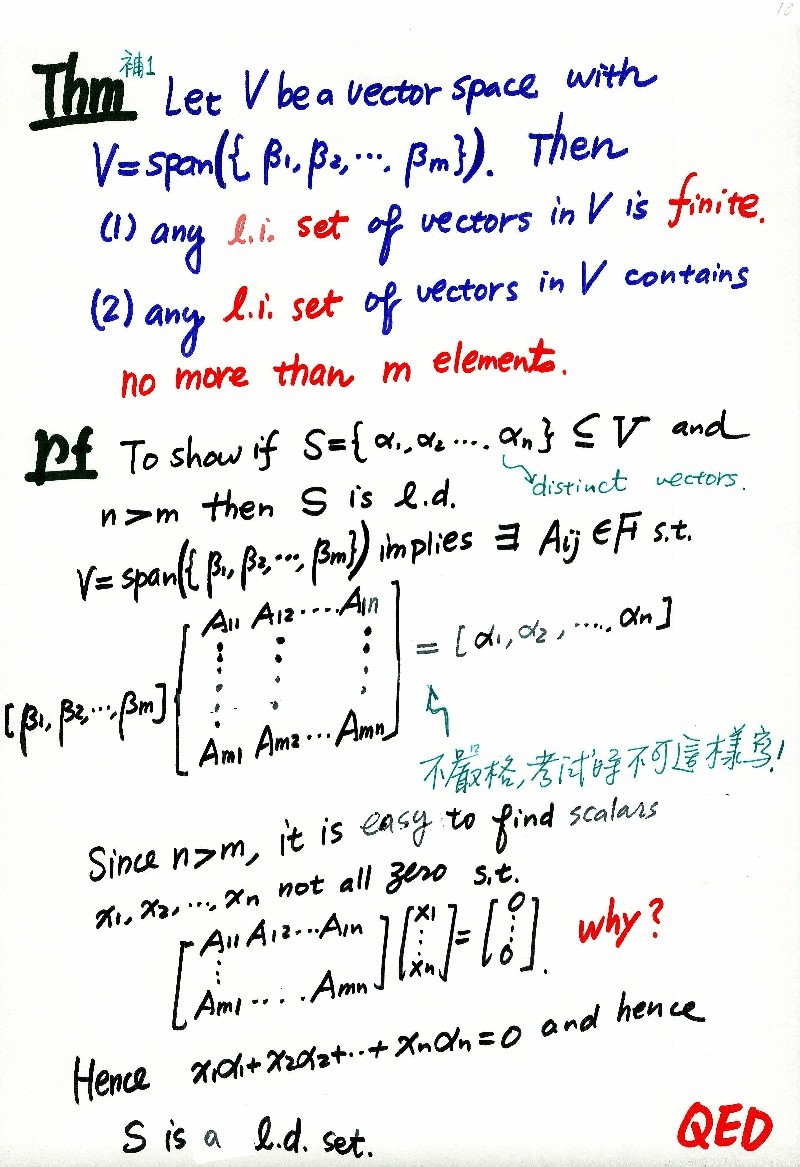 Thm 補1 Let V be a vector space with
V=span({β1, β2, ⋯, βm}). Then
(1) any l.i. set of vectors in V is finite.
(2) any l.i. set of vectors in V contains
no more than m elements.
pf To show if S={α1, α2 ⋯, αn} ⊆ V and
distinct vectors.
n>m then S is l.d.
V=span({β1, β2, ⋯, βm}) implies ∃ Aij ∈ F s.t.
A11 A12 ⋯ A1n
[β1, β2, ⋯, βm] [ ⋮ ⋮ ⋮ ] = [α1, α2, ⋯, αn]
Am1 Am2 ⋯ Amn
不嚴格,考試時不可這樣寫!
Since n>m, it is easy to find scalars
x1, x2, ⋯, xn not all zero s.t.
[A11 A12 ⋯ A1n] [x1] [0]
[⋮] [⋮] = [⋮] why?
[Am1 ⋯ Amn] [xn] [0].
Hence x1α1+x2α2+⋯+xnαn=0 and hence
S is a l.d. set. QED